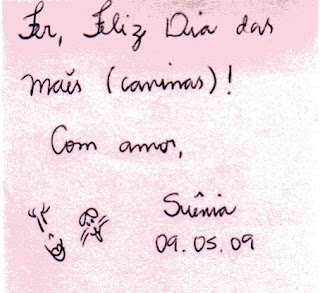 Fer, Feliz Dia das
mães (caninas)!
Com amor,
Suênia
09.05.09